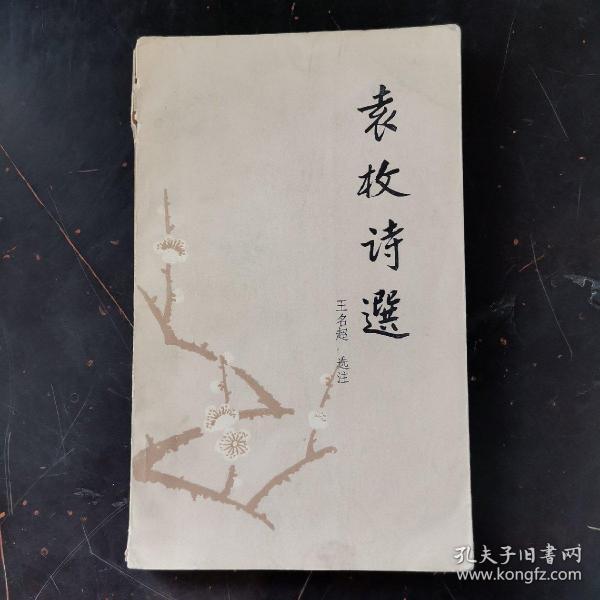 袁枚诗選
王名超 选注
孔夫子旧書网
www.kongfz.com